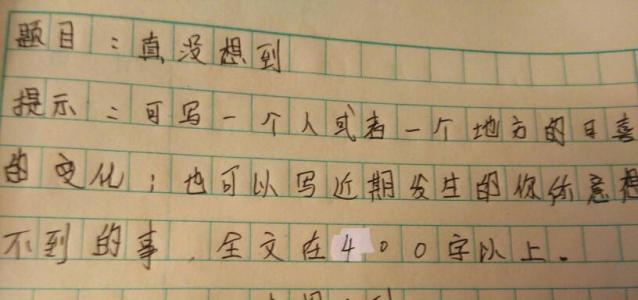 题目：真没想到
提示：可写一个人或者一个地方的日喜
的变化；也可以写近期发生的你意想
不到的事，全文在400字以上。